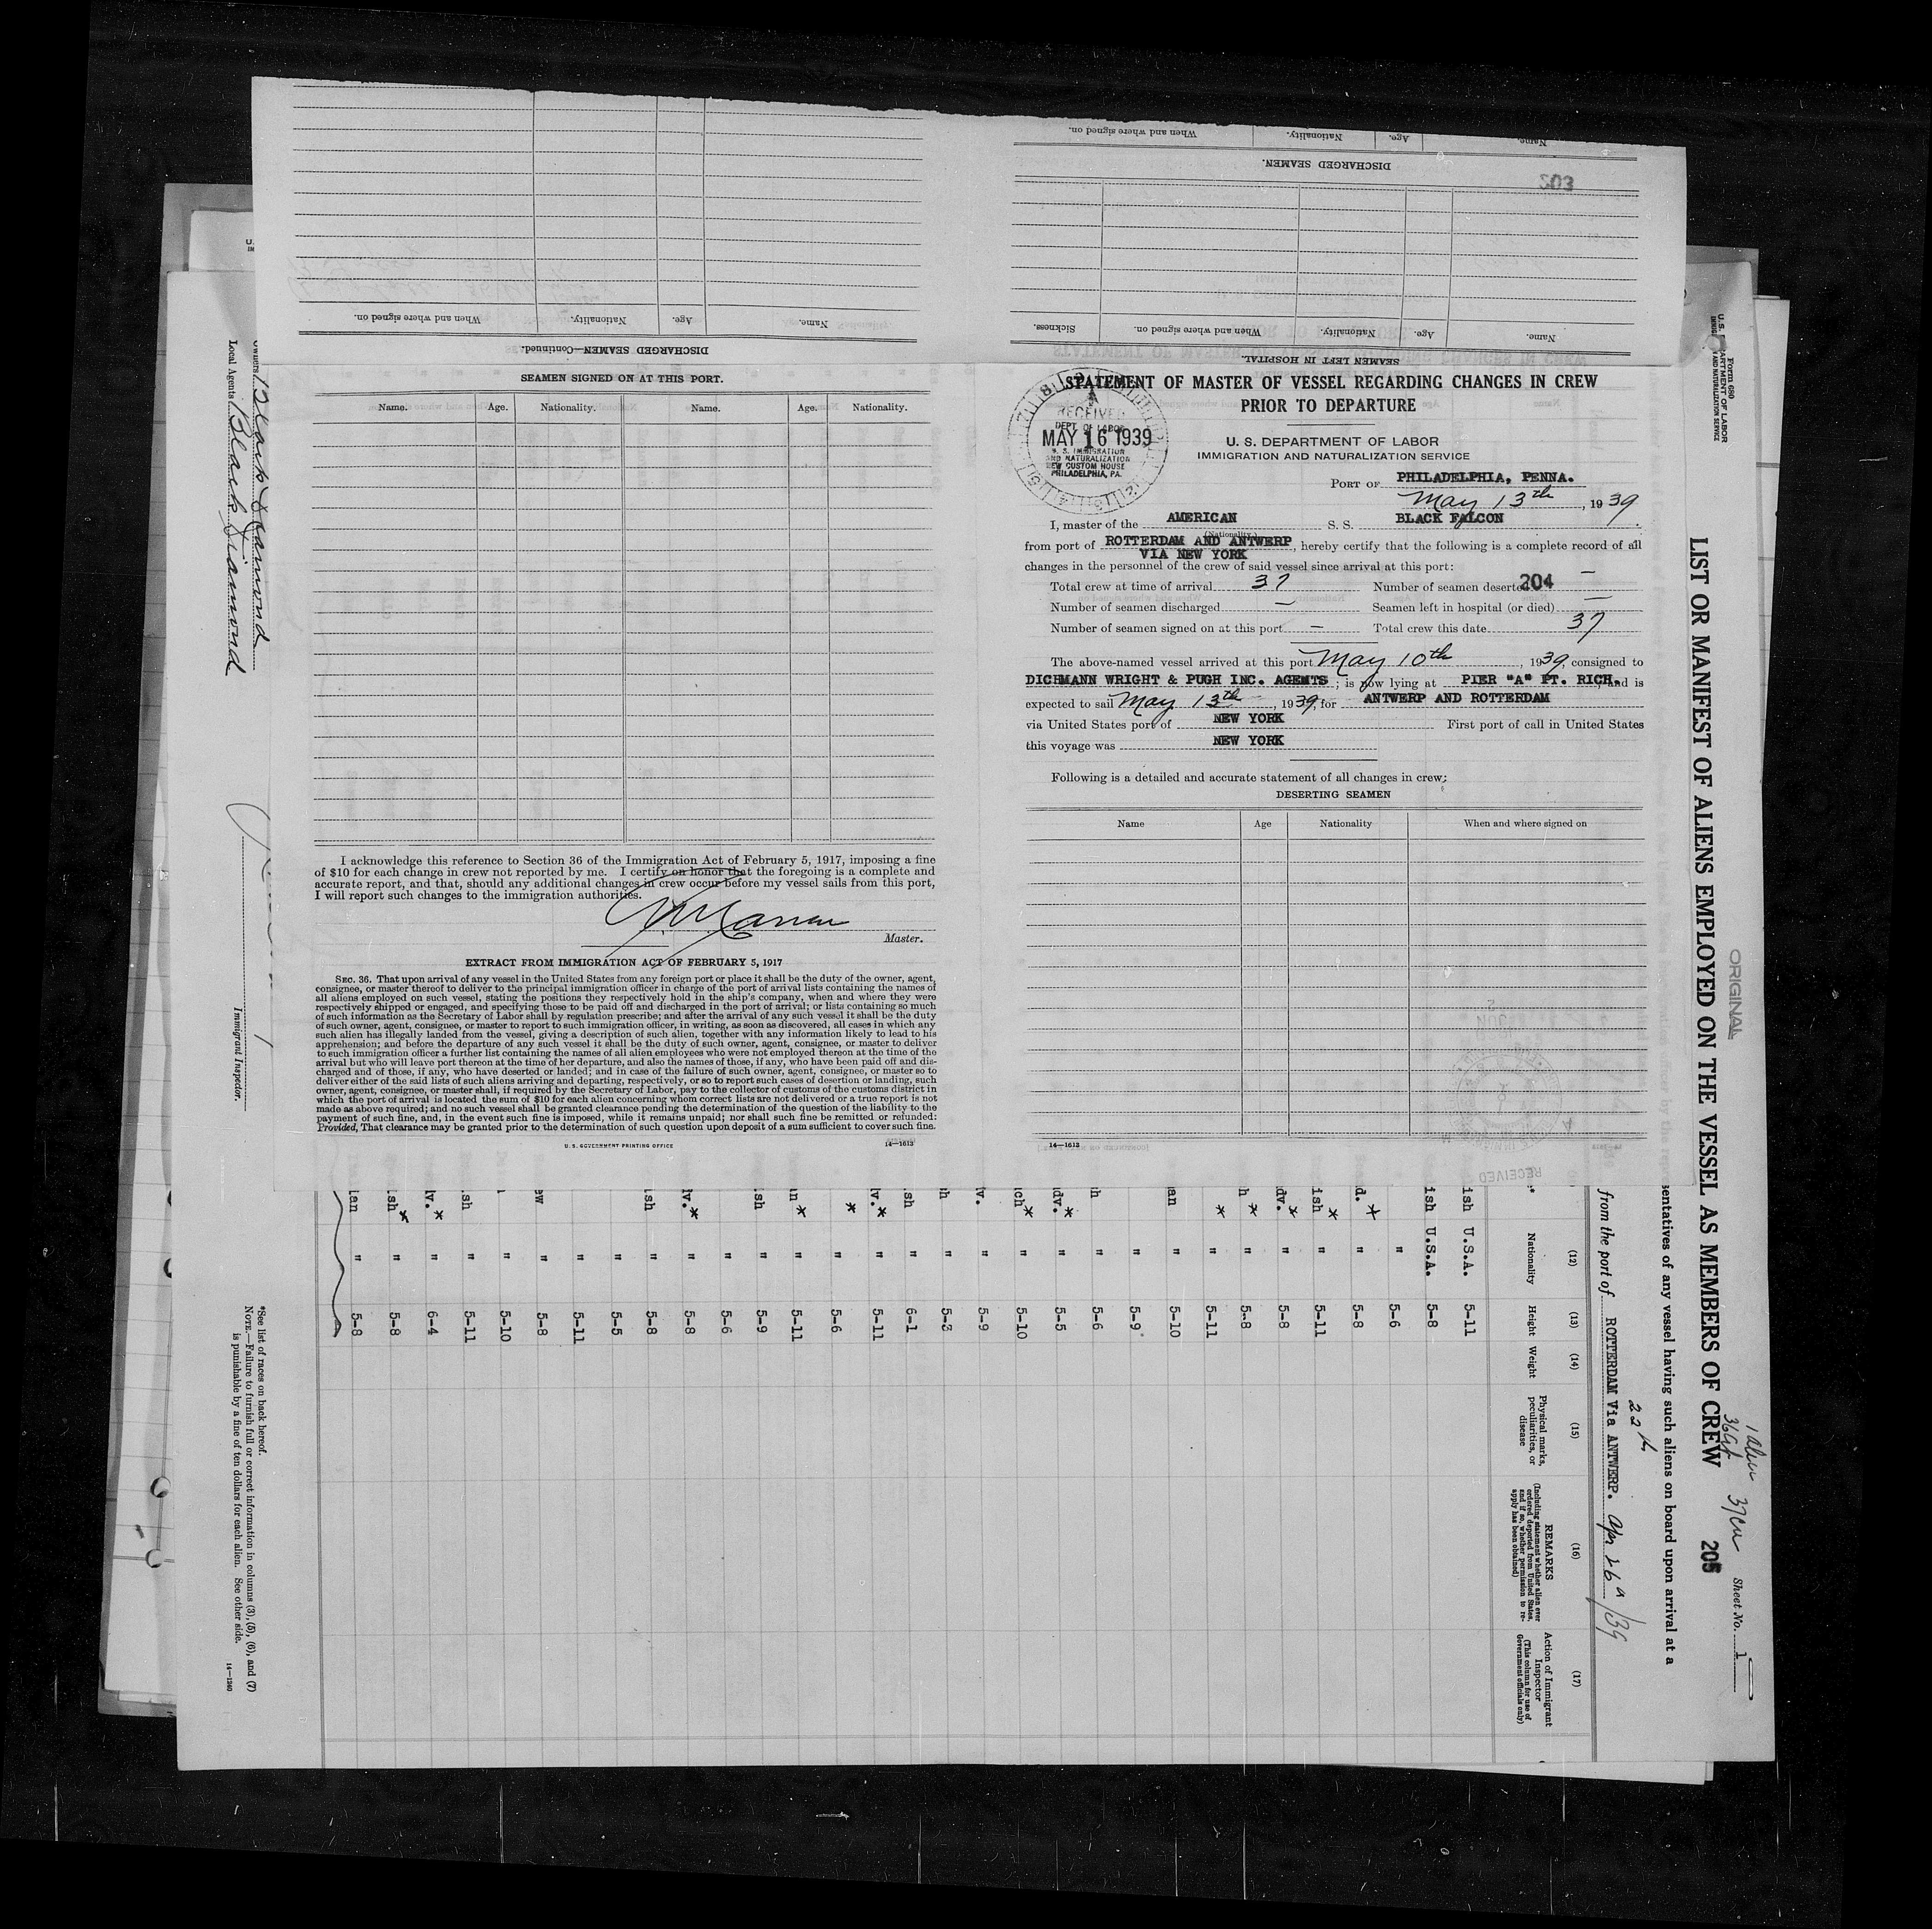 When and where signed on.
Nationality.
Age.
Name.
DISCHARGED SEAMEN.
203
Sickness.
When and where signed on.
Nationality.
Age.
Name.
SEAMEN LEFT IN HOSPITAL.
When and where signed on.
Nationality.
Age.
Name.
DISCHARGED SEAMEN—Continued.
SEAMEN SIGNED ON AT THIS PORT.
Name. Age. Nationality. Name. Age. Nationality.
I acknowledge this reference to Section 36 of the Immigration Act of February 5, 1917, imposing a fine
of $10 for each change in crew not reported by me. I certify on honor that the foregoing is a complete and
accurate report, and that, should any additional changes in crew occur before my vessel sails from this port,
I will report such changes to the immigration authorities.
Master.
EXTRACT FROM IMMIGRATION ACT OF FEBRUARY 5, 1917
SEC. 36. That upon arrival of any vessel in the United States from any foreign port or place it shall be the duty of the owner, agent,
consignee, or master thereof to deliver to the principal immigration officer in charge of the port of arrival lists containing the names of
all aliens employed on such vessel, stating the positions they respectively hold in the ship's company, when and where they were
respectively shipped or engaged, and specifying those to be paid off and discharged in the port of arrival; or lists containing so much
of such information as the Secretary of Labor shall by regulation prescribe; and after the arrival of any such vessel it shall be the duty
of such owner, agent, consignee, or master to report to such immigration officer, in writing, as soon as discovered, all cases in which any
such alien has illegally landed from the vessel, giving a description of such alien, together with any information likely to lead to his
apprehension; and before the departure of any such vessel it shall be the duty of such owner, agent, consignee, or master to deliver
to such immigration officer a further list containing the names of all alien employees who were not employed thereon at the time of the
arrival but who will leave port thereon at the time of her departure, and also the names of those, if any, who have been paid off and dis-
charged and of those, if any, who have deserted or landed; and in case of the failure of such owner, agent, consignee, or master so to
deliver either of the said lists of such aliens arriving and departing, respectively, or so to report such cases of desertion or landing, such
owner, agent, consignee, or master shall, if required by the Secretary of Labor, pay to the collector of customs of the customs district in
which the port of arrival is located the sum of $10 for each alien concerning whom correct lists are not delivered or a true report is not
made as above required; and no such vessel shall be granted clearance pending the determination of the question of the liability to the
payment of such fine, and, in the event such fine is imposed, while it remains unpaid; nor shall such fine be remitted or refunded:
Provided, That clearance may be granted prior to the determination of such question upon deposit of a sum sufficient to cover such fine.
U. S. GOVERNMENT PRINTING OFFICE 14—1613
STATEMENT OF MASTER OF VESSEL REGARDING CHANGES IN CREW
PRIOR TO DEPARTURE
RECEIVED
DEPT. OF LABOR
MAY 16 1939
U. S. IMMIGRATION
AND NATURALIZATION
NEW CUSTOM HOUSE
PHILADELPHIA, PA.
U. S. DEPARTMENT OF LABOR
IMMIGRATION AND NATURALIZATION SERVICE
PORT OF PHILADELPHIA, PENNA.
May 13th, 1939
I, master of the AMERICAN S. S. BLACK FALCON
(Nationality)
from port of ROTTERDAM AND ANTWERP, hereby certify that the following is a complete record of all
VIA NEW YORK
changes in the personnel of the crew of said vessel since arrival at this port:
Total crew at time of arrival 37 Number of seamen deserted 204 —
Number of seamen discharged — Seamen left in hospital (or died) —
Number of seamen signed on at this port — Total crew this date 37
The above-named vessel arrived at this port May 10th, 1939, consigned to
DICHMANN WRIGHT & PUGH INC. AGENTS; is now lying at PIER "A" PT. RICH. and is
expected to sail May 13th, 1939, for ANTWERP AND ROTTERDAM
via United States port of NEW YORK First port of call in United States
this voyage was NEW YORK
Following is a detailed and accurate statement of all changes in crew:
DESERTING SEAMEN
Name Age Nationality When and where signed on
14—1613
RECEIVED
Form 680
U. S. DEPARTMENT OF LABOR
IMMIGRATION AND NATURALIZATION SERVICE
LIST OR MANIFEST OF ALIENS EMPLOYED ON THE VESSEL AS MEMBERS OF CREW
ORIGINAL
1 alien
37 cw
205
Sheet No. 1
sentatives of any vessel having such aliens on board upon arrival at a
from the port of ROTTERDAM Via ANTWERP. Apr 26 /39
(12) (13) (14) (15) (16) (17)
Nationality
Height
Weight
Physical marks, peculiarities, or disease
REMARKS
(Including statement whether alien ever ordered deported from United States, and if so, whether permission to re-apply has been obtained)
Action of Immigrant Inspector
(This column for use of Government officials only)
ish U.S.A. 5-11
ish U.S.A. 5-8
" 5-6
d. " 5-8
ish * " 5-11
dv. * " 5-8
h * " 5-8
* " 5-11
an " 5-10
" 5-9
h " 5-6
dv. * " 5-5
ch * " 5-10
v. " 5-9
h " 5-3
sh " 6-1
v. * " 5-11
* " 5-6
n * " 5-11
sh " 5-9
" 5-6
v. * " 5-8
sh " 5-8
" 5-5
" 5-11
ew " 5-8
" 5-10
sh " 5-11
v. * " 6-4
sh * " 5-8
an " 5-8
*See list of races on back hereof.
NOTE.—Failure to furnish full or correct information in columns (3), (5), (6), and (7)
is punishable by a fine of ten dollars for each alien. See other side.
14—1240
Owners Black Diamond
Local Agents Black Diamond
Immigrant Inspector.